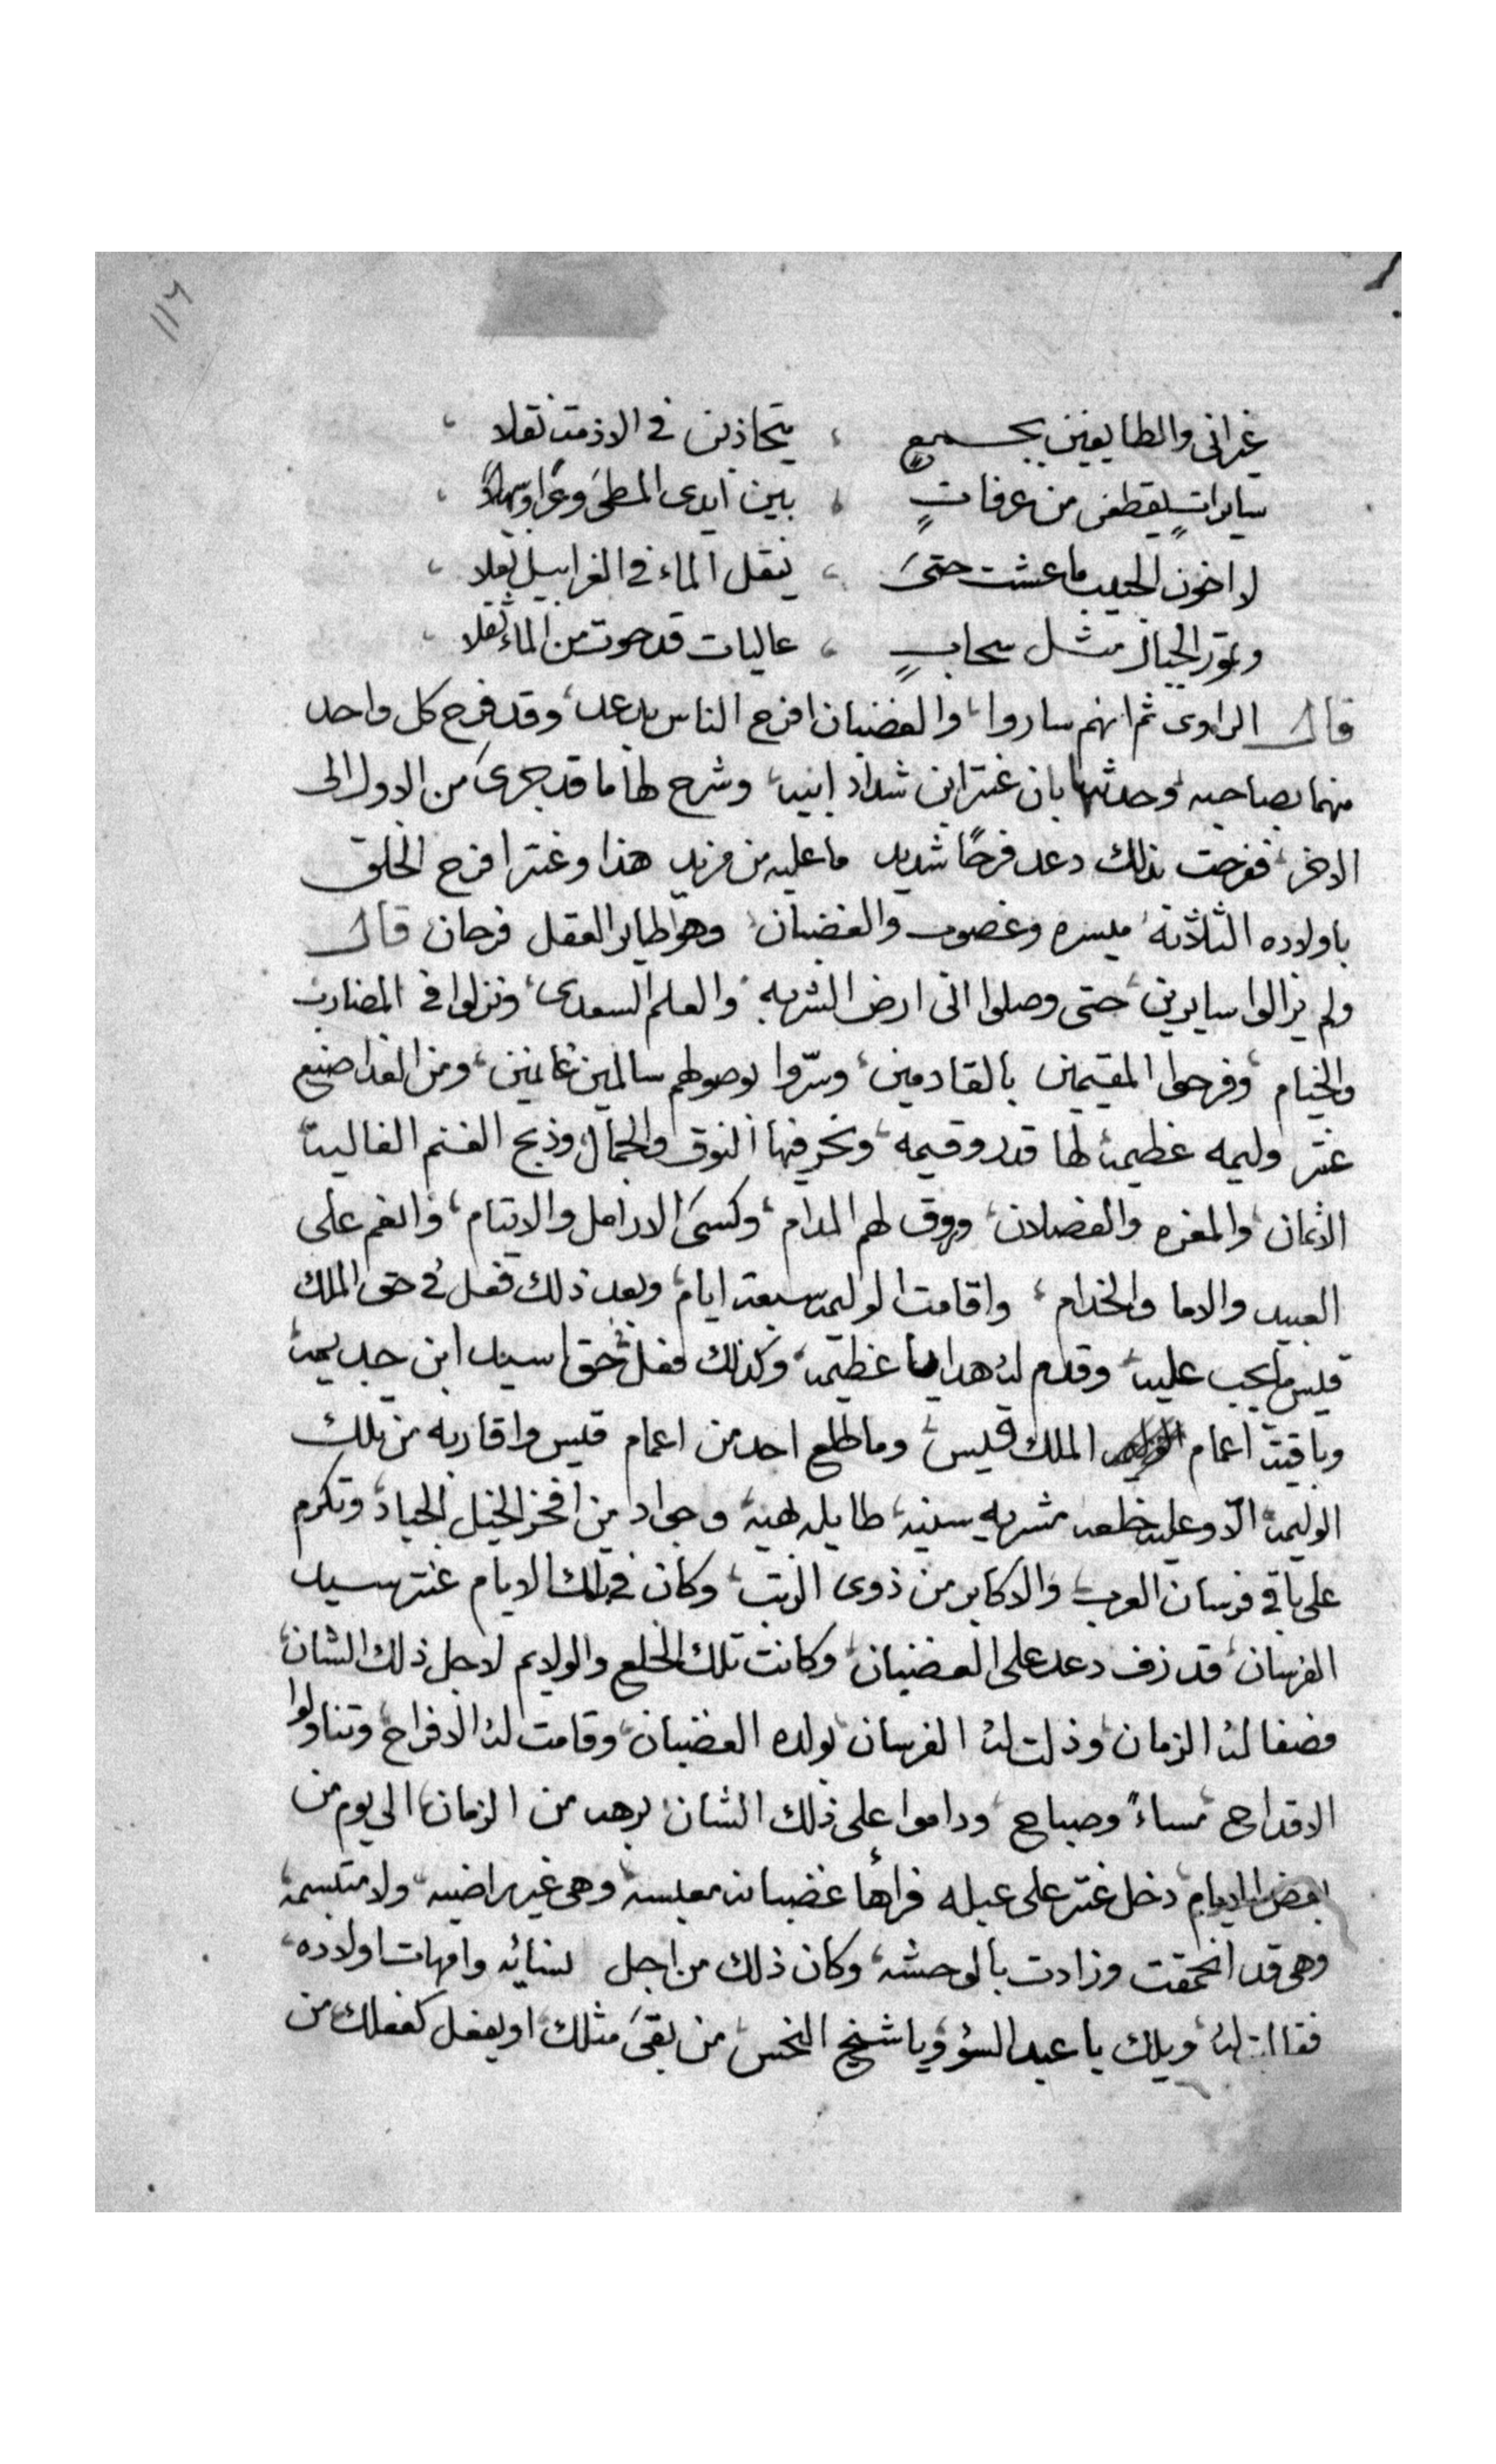 ١١٦
غيراني والطايفين بجميع ، يتجاذبن في الازمة نقلا ،
سايرات يقطعن من عرفات ، بين ايدى المطى وعرا وسهلا ،
لا اخون الحبيب ما عشت حتى ، ينقل الماء في الغرابيل نقلا ،
وتمور الجبال مثل سحاب ، عاليات قد حوت من الماء ثقلا ،
قال الراوى ثم انهم ساروا، والغضبان افرح الناس بدعد، وقد فرح كل واحد
منهما بصاحبه، وحدثها بان عنتر ابن شداد ابيه، وشرح لها ما قد جرى من الاول الى
الاخر، ففرحت بذلك دعد فرحًا شديد ما عليه من مزيد هذا وعنتر افرح الخلق
باولاده الثلاثة، ميسره وغصوب والغضبان، وهو طاير العقل فرحان قال
ولم يزالوا سايرين، حتى وصلوا الى ارض الشربه، والعلم السعدى، ونزلوا في المضارب
والخيام، وفرحوا المقيمين بالقادمين، وسرّوا بوصولهم سالمين غانمين، ومن الغد اصنع
عنتر وليمه عظيمة لها قدر وقيمه، ونحر فيها النوق والجمال، وذبح الغنم الغالية
الاثمان، والمعزه والفصلان، وروق لهم المدام، وكسى الارامل والايتام، وانعم على
العبيد والاما والخدام، واقامت الوليمة سبعة ايام، وبعد ذلك فعل في حق الملك
قيس ما يجب عليه، وقدم له هدايا عظيمة، وكذلك فعل في حق اسيد ابن جديمة
وباقية اعمام الملك قيس، وما طلع احد من اعمام قيس واقاربه من تلك
الوليمة، الّا وعليه خلعه مشربه سنية، طايله بهية، وجواد من افخر الخيل الجياد، وتكرم
على باقي فرسان العرب، والاكابر من ذوى الرتب، وكان في تلك الايام عنتر سيد
الفرسان، قد زف دعد على الغضبان، وكانت تلك الخلع والولايم لاجل ذلك الشان،
فصفا له الزمان، وذلت له الفرسان، بولده الغضبان، وقامت له الافراح، وتناولوا
الاقداح، مساءً وصباح، وداموا على ذلك الشان، برهه من الزمان، الى يوم من
بعض الايام، دخل عنتر على عبله فراها غضبانه معبسه، وهى غير راضيه، ولا متبسمة،
وهى قد انحمقت وزادت بالوحشه، وكان ذلك من اجل نسائه وامهات اولاده،
فقالت له، ويلك يا عبد السؤ، ويا شيخ النحس، من بقى مثلك، او يفعل كفعلك من